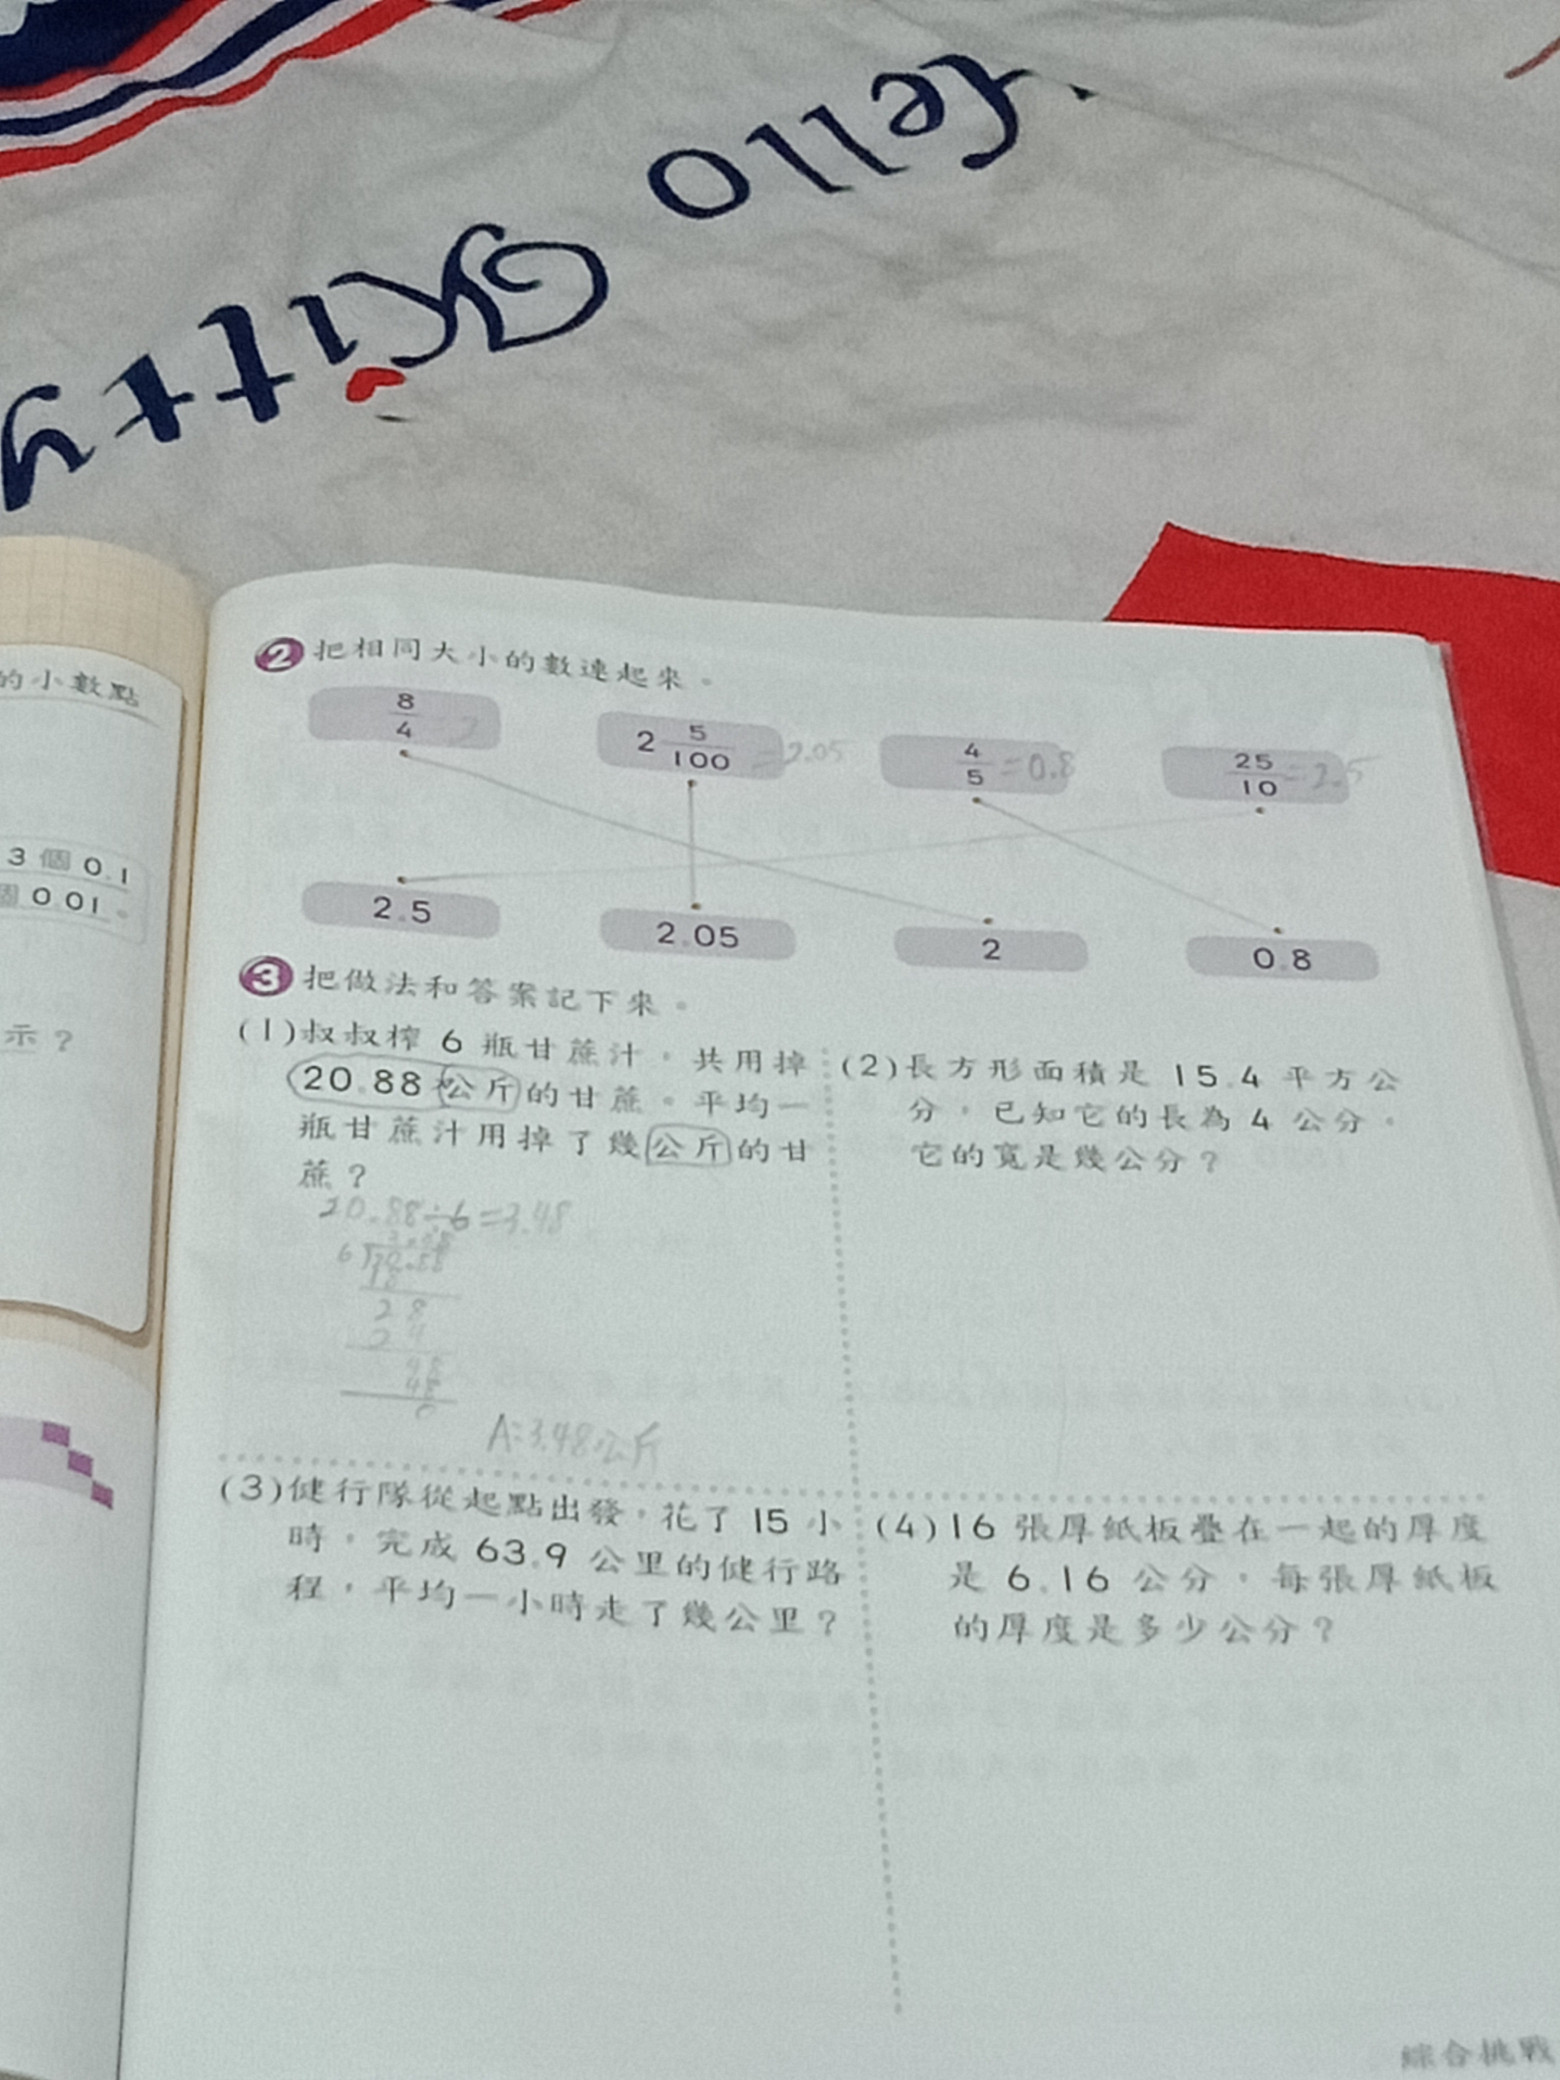 Hello Kitty
的小數點
3個0.1
個0.01。
示？
2 把相同大小的數連起來。
8/4 =2
2 5/100 =2.05
4/5 =0.8
25/10 =2.5
2.5
2.05
2
0.8
3 把做法和答案記下來。
(1)叔叔榨 6 瓶甘蔗汁，共用掉
20.88 公斤的甘蔗。平均一
瓶甘蔗汁用掉了幾公斤的甘
蔗？
20.88÷6=3.48
3.48
6 20.88
18
2 8
2 4
48
48
0
A:3.48公斤
(2)長方形面積是 15.4 平方公
分，已知它的長為 4 公分，
它的寬是幾公分？
(3)健行隊從起點出發，花了 15 小
時，完成 63.9 公里的健行路
程，平均一小時走了幾公里？
(4)16 張厚紙板疊在一起的厚度
是 6.16 公分，每張厚紙板
的厚度是多少公分？
綜合挑戰